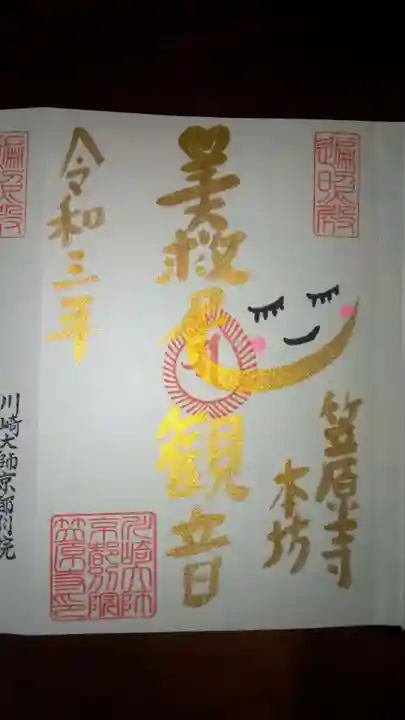 遍照殿
笠原寺
本坊
美救月観音
令和三年
川崎大師
京都別院
笠原寺印
遍照殿
川崎大師京都別院